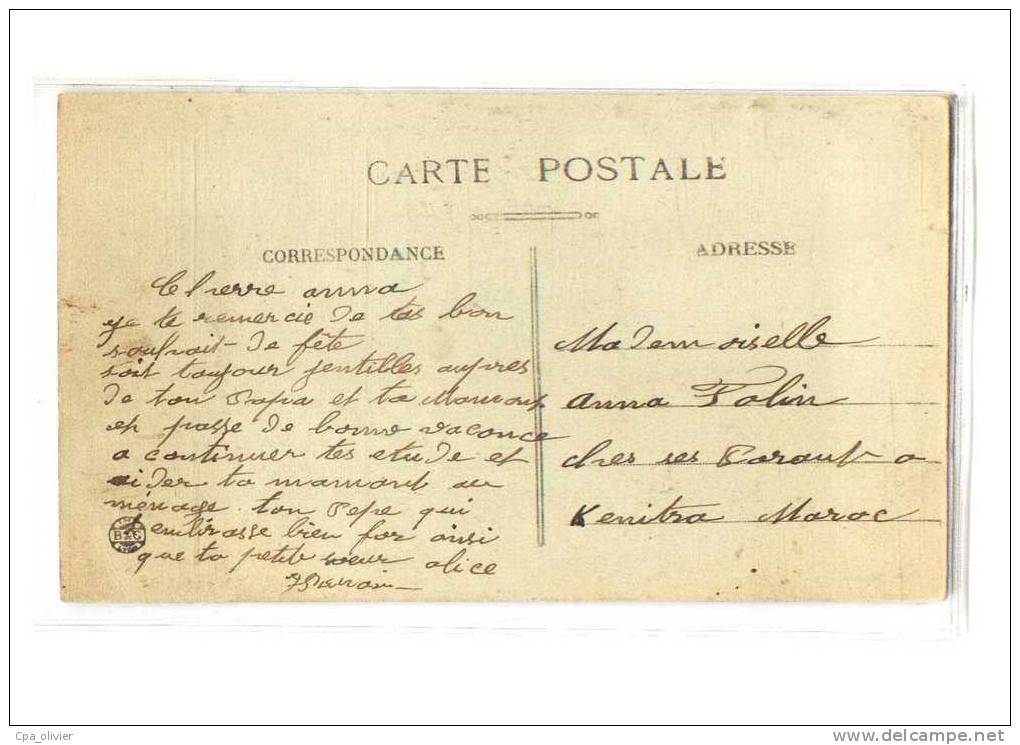 CARTE POSTALE
CORRESPONDANCE
Cherre anna
je te remercie de tes bon
souhait de fête
soit toujour jentilles aupres
de ton Papa et ta Mamant
et passe de bonne vaconce
a continuer tes etude et
aider ta mamant au
ménage. ton Pepe qui
t'embrasse bien for ainsi
que ta petite sœur alice
ADRESSE
Mademoiselle
Anna Folin
ches ses Parant a
Kenitra Maroc
Cpa_olivier
www.delcampe.net